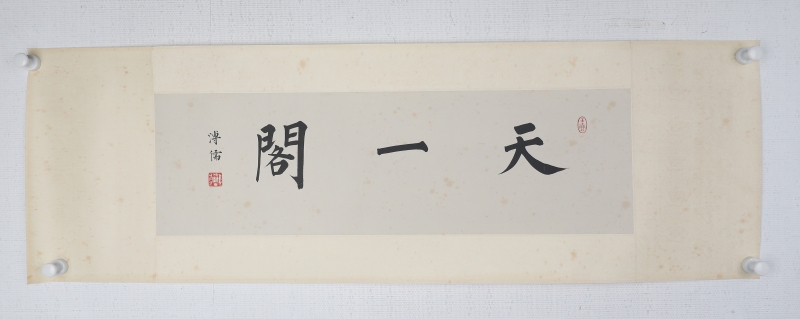 天一閣
溥儒